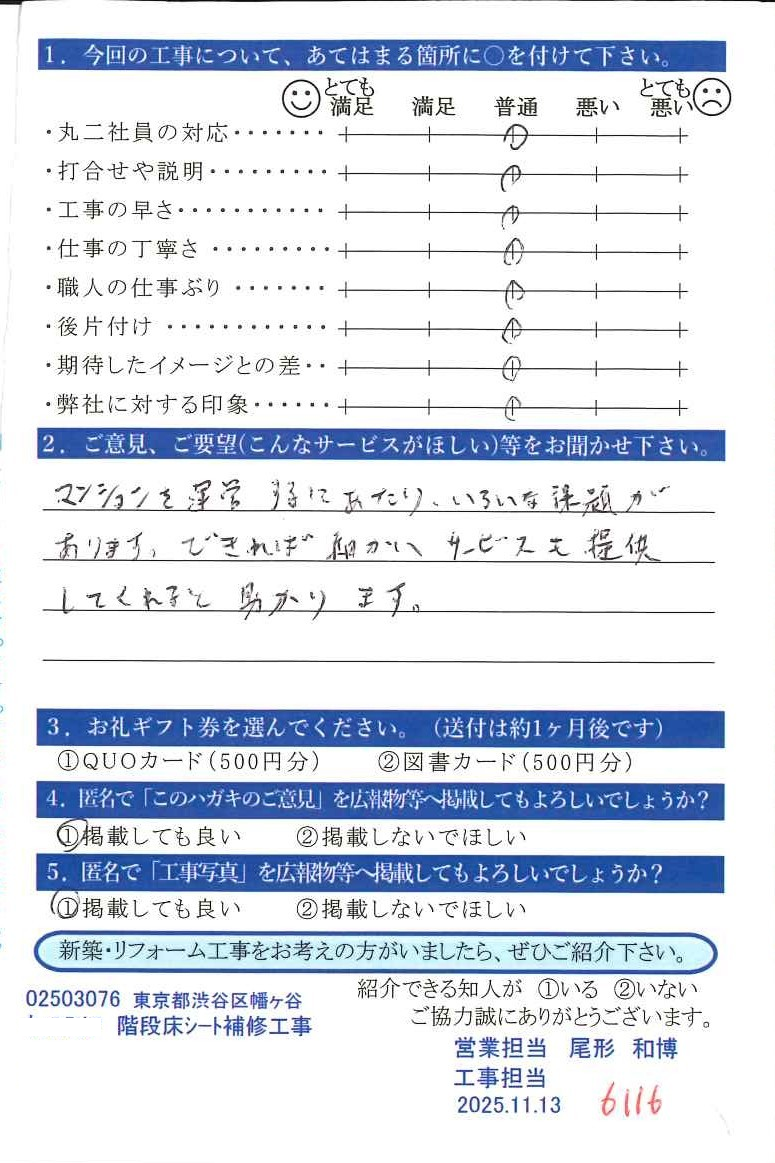 1．今回の工事について、あてはまる箇所に○を付けて下さい。
とても満足 満足 普通 悪い とても悪い
・丸二社員の対応・・・・・・・
・打合せや説明・・・・・・・・・
・工事の早さ・・・・・・・・・・・
・仕事の丁寧さ・・・・・・・・・
・職人の仕事ぶり・・・・・・・
・後片付け・・・・・・・・・・・・
・期待したイメージとの差・・
・弊社に対する印象・・・・・・
2．ご意見、ご要望(こんなサービスがほしい)等をお聞かせ下さい。
マンションを運営するにあたり、いろいな課題が
あります。できれば細かいサービスも提供
してくれると助かります。
3．お礼ギフト券を選んでください。（送付は約1ヶ月後です）
①QUOカード（500円分） ②図書カード（500円分）
4．匿名で「このハガキのご意見」を広報物等へ掲載してもよろしいでしょうか？
①掲載しても良い ②掲載しないでほしい
5．匿名で「工事写真」を広報物等へ掲載してもよろしいでしょうか？
①掲載しても良い ②掲載しないでほしい
新築・リフォーム工事をお考えの方がいましたら、ぜひご紹介下さい。
紹介できる知人が ①いる ②いない
ご協力誠にありがとうございます。
02503076 東京都渋谷区幡ヶ谷
階段床シート補修工事
営業担当 尾形 和博
工事担当
2025.11.13 6116